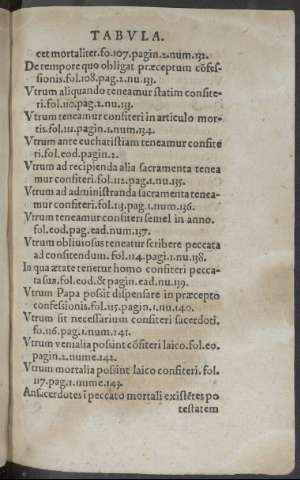 TABVLA.
cet mortaliter.fo.107.pagin.2.num.132.
De tempore quo obligat præceptum cõfes-
sionis.fol.108.pag.2.nu.133.
Vtrum aliquando teneamur statim confite-
ri.fol.110.pag.2.nu.133.
Vtrum teneamur confiteri in articulo mor-
tis.fol.111.pagin.1.num.134.
Vtrum ante eucharistiam teneamur confite
ri.fol.eod.pagin.2.
Vtrum ad recipienda alia sacramenta tenea
mur confiteri.fol.112.pag.1.nu.135.
Vtrum ad administranda sacramenta tenea-
mur confiteri.fol.113.pag.1.num.136.
Vtrum teneamur confiteri semel in anno.
fol.eod.pag.ead.num.137.
Vtrum obliuiosus teneatur scribere peccata
ad confitendum.fol.114.pagi.1.nu.138.
In qua ætate tenetur homo confiteri pecca-
ta sua.fol.eod.&pagin.ead.nu.139.
Vtrum Papa possit dispensare in præcepto
confessionis.fol.115.pagin.1.nu.140.
Vtrum sit necessarium confiteri sacerdoti.
fo.116.pag.1.num.141.
Vtrum venialia possint cõfiteri laico.fol.eo.
pagin.2.nume.142.
Vtrum mortalia possint laico confiteri.fol.
117.pag.1.nume.143.
An sacerdotes ĩ peccato mortali existẽtes po
testatem